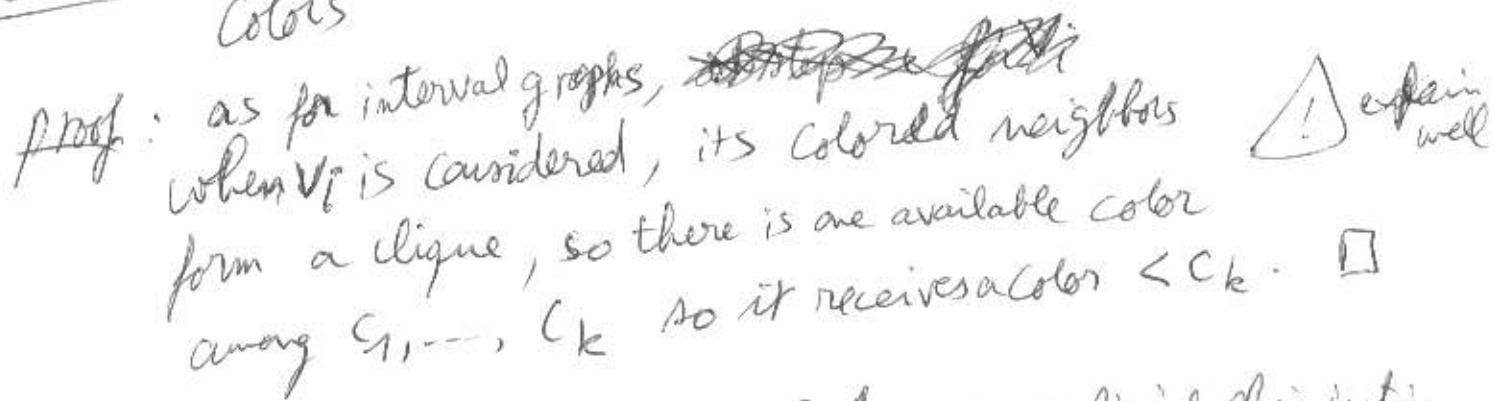 colors
proof: as for interval graphs,
when Vi is considered, its colored neighbors
⚠ explain well
form a clique, so there is one available color
among C1,---, Ck so it receives a color < Ck. □